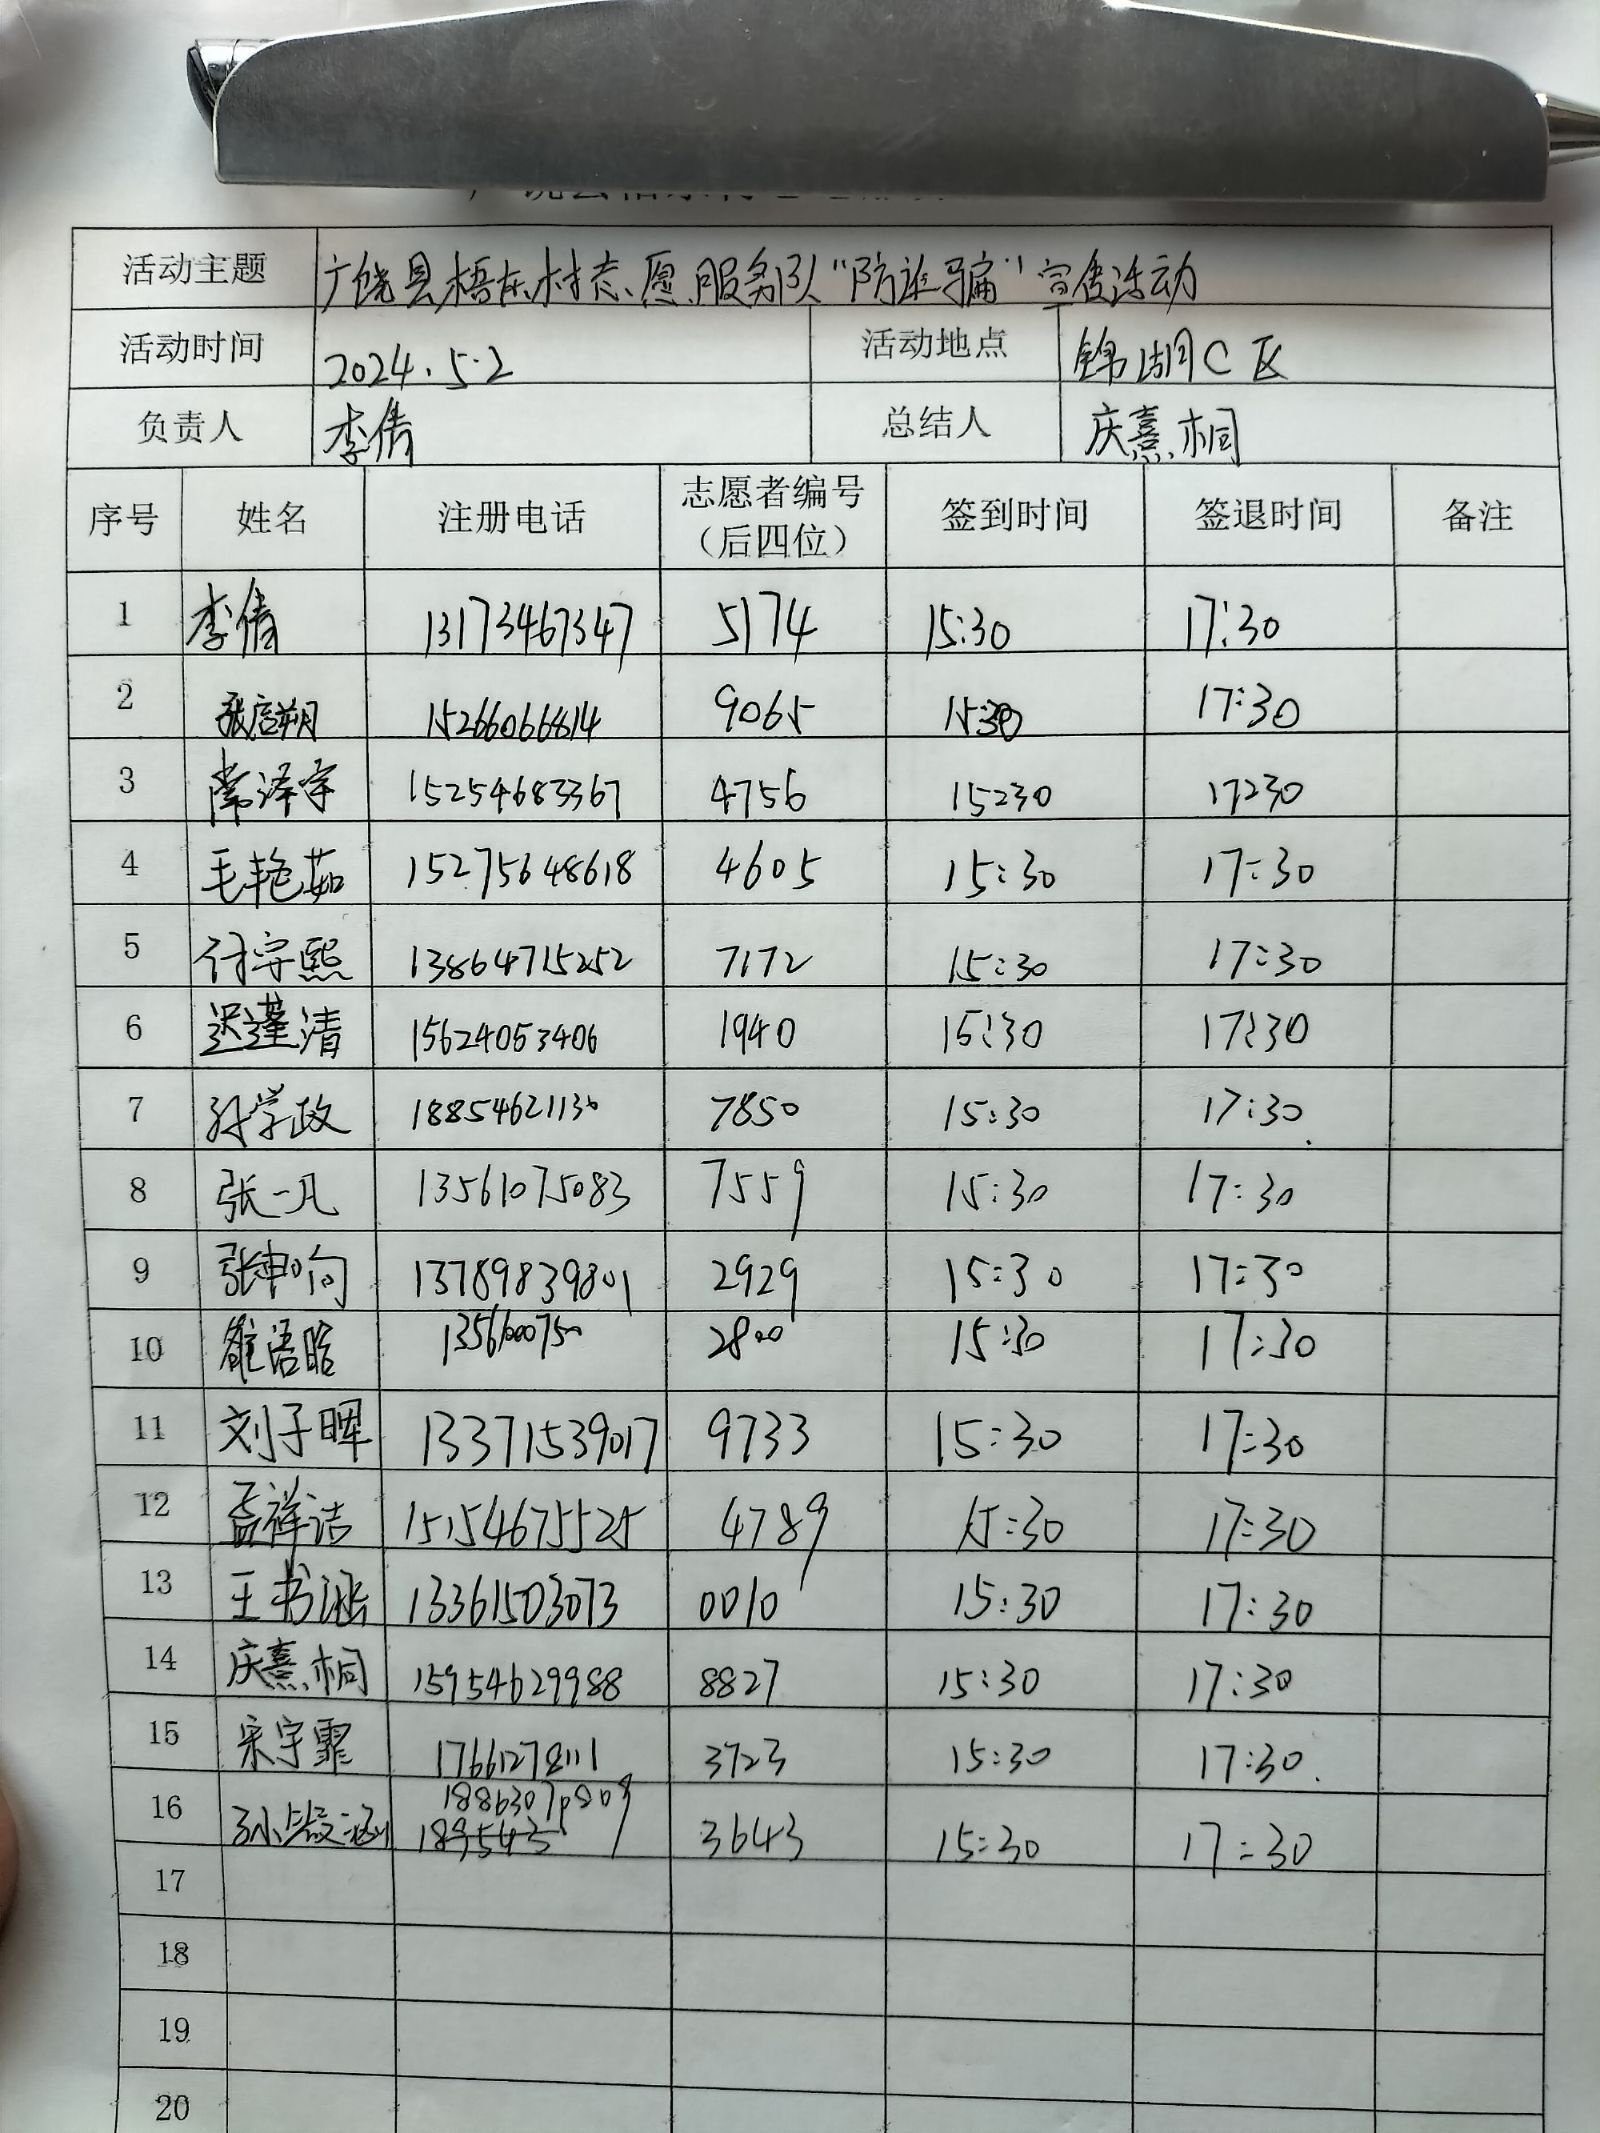 活动主题 广饶县梧东村志愿服务队“防诈骗”宣传活动
活动时间 2024.5.2 活动地点 锦湖C区
负责人 李倩 总结人 庆熹桐
序号 姓名 注册电话 志愿者编号（后四位） 签到时间 签退时间 备注
1 李倩 13173467347 5174 15:30 17:30
2 15266066814 9065 15:30 17:30
3 常泽宇 15254683367 4756 15:30 17:30
4 毛艳茹 15275648618 4605 15:30 17:30
5 付守熙 13864715252 7172 15:30 17:30
6 迟蓬清 15624053406 1940 15:30 17:30
7 孙学政 18854621130 7850 15:30 17:30
8 张一凡 13561075083 7559 15:30 17:30
9 13789839801 2929 15:30 17:30
10 2800 15:30 17:30
11 刘子晖 13371539017 9733 15:30 17:30
12 孟祥洁 15154675525 4789 15:30 17:30
13 王书涵 13361503073 0010 15:30 17:30
14 庆熹桐 15954629988 8827 15:30 17:30
15 宋宇霏 17661278111 3723 15:30 17:30
16 3643 15:30 17:30
17
18
19
20